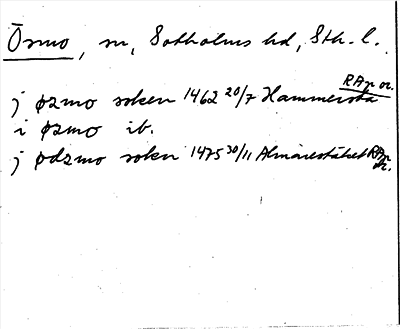 Ösmo, sn, Sotholms hd, Sth. l.
j øzmo soken 1462 20/7 Hammersta RAp or.
i øzmo ib.
j ødzmo soken 1475 30/11 Almarestäket RAp or.